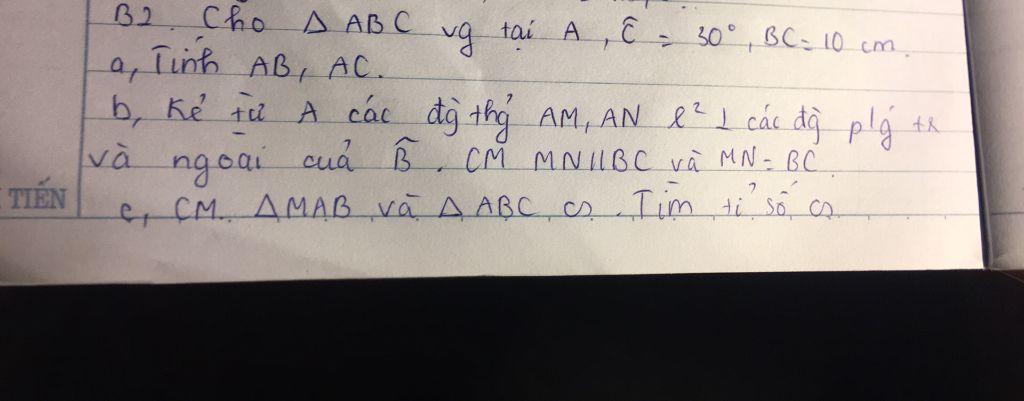 B2. Cho Δ ABC vg tại A, Ĉ = 30°, BC = 10 cm.
a, Tính AB, AC.
b, Kẻ từ A các đg thg AM, AN l² ⊥ các đg p/g tr
và ngoài của B̂. CM MN//BC và MN = BC.
TIẾN
c, CM. Δ MAB và Δ ABC ഗ. Tìm tỉ số ഗ